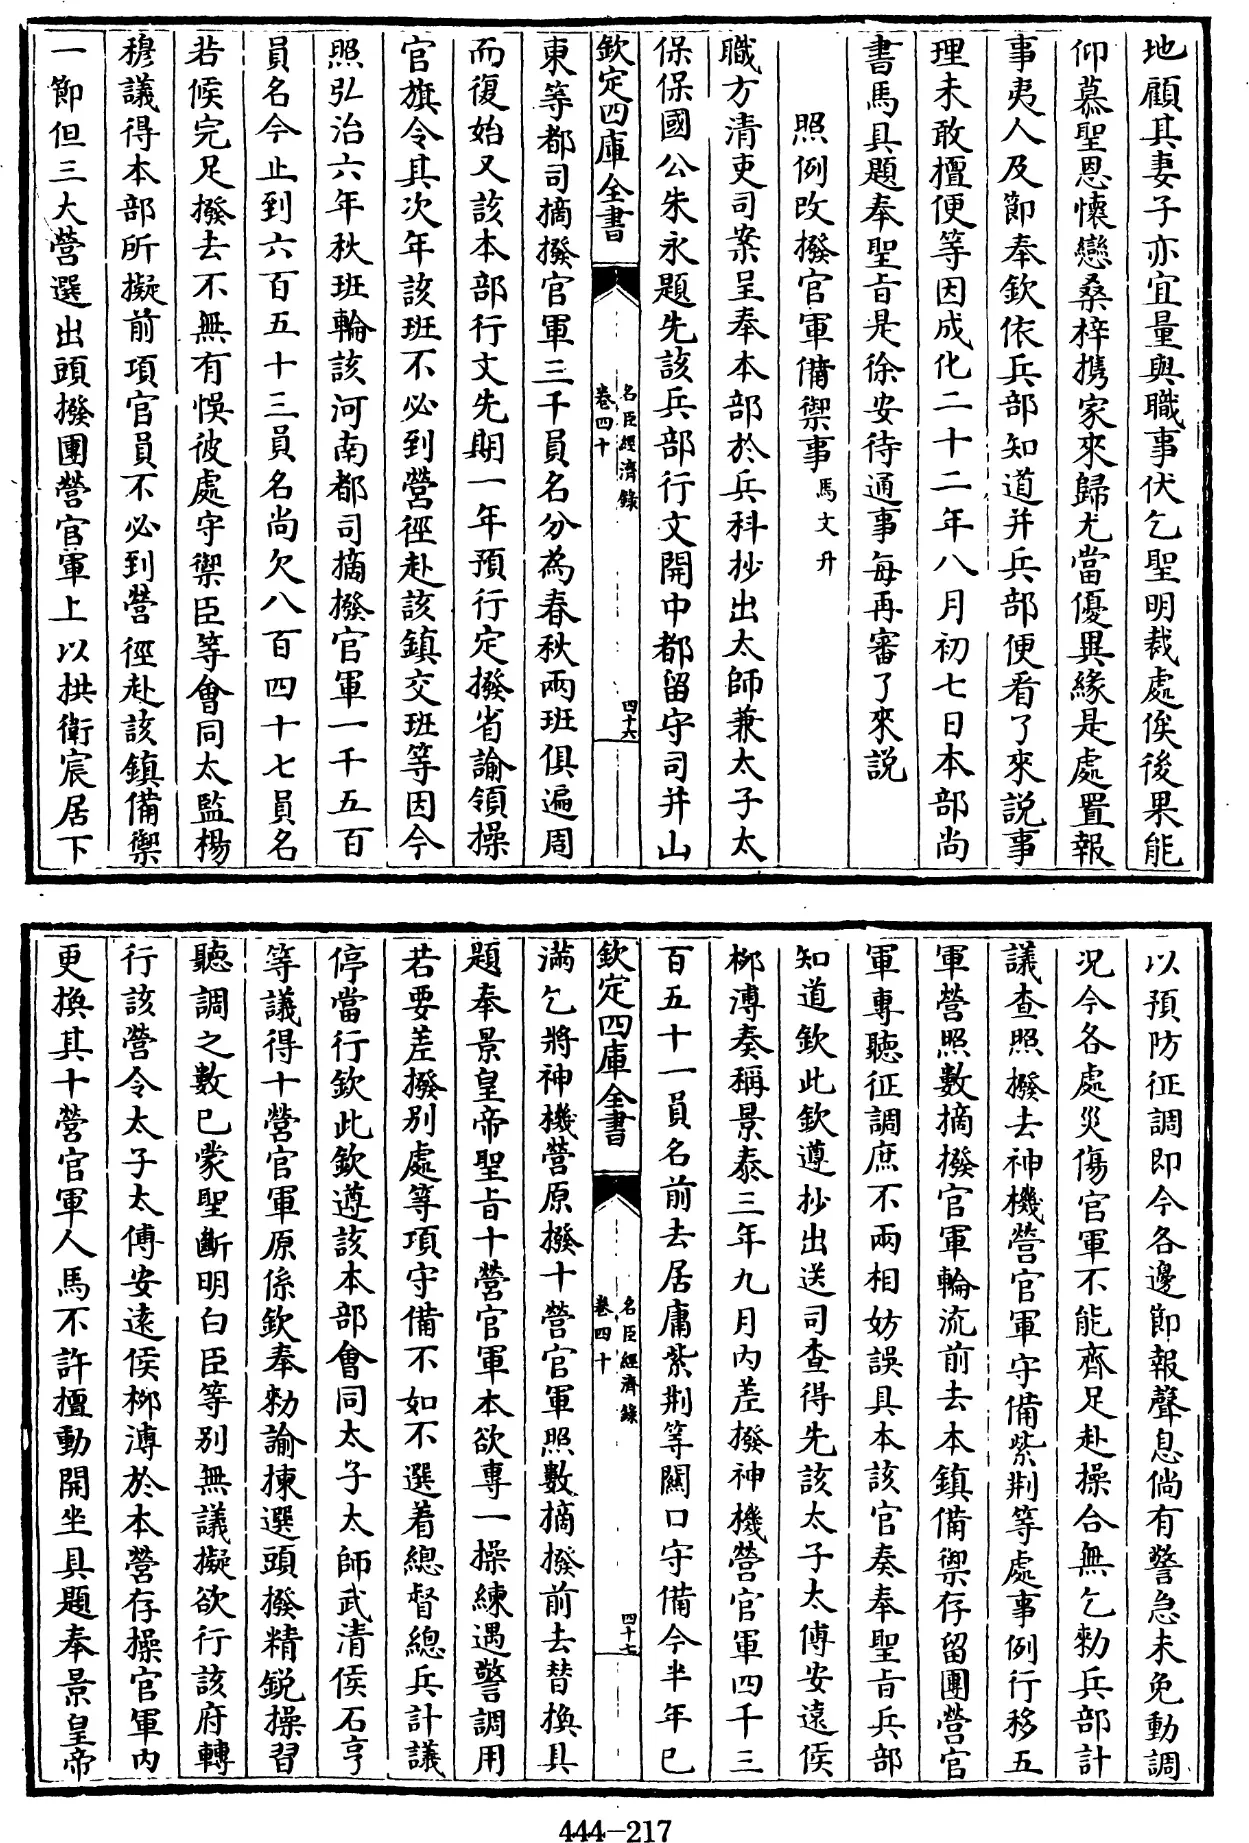 地顧其妻子亦宜量與職事伏乞聖明裁處俟後果能
仰慕聖恩懷戀桑梓携家來歸尤當優異緣是處置報
事夷人及節奉欽依兵部知道并兵部便看了來説事
理未敢擅便等因成化二十二年八月初七日本部尚
書馬具題奉聖㫖是徐安待通事每再審了來説
照例改撥官軍備禦事馬文升
職方清吏司案呈奉本部於兵科抄出太師兼太子太
保保國公朱永題先該兵部行文開中都留守司并山
欽定四庫全書
名臣經濟錄
卷四十
四十六
東等都司摘撥官軍三千員名分為春秋兩班俱遍周
而復始又該本部行文先期一年預行定撥省諭領操
官旗令其次年該班不必到營徑赴該鎮交班等因今
照弘治六年秋班輪該河南都司摘撥官軍一千五百
員名今止到六百五十三員名尚欠八百四十七員名
若候完足撥去不無有悞彼處守禦臣等會同太監楊
穆議得本部所擬前項官員不必到營徑赴該鎮備禦
一節但三大營選出頭撥團營官軍上以拱衛宸居下
以預防征調即今各邊節報聲息倘有警急未免動調
况今各處災傷官軍不能齊足赴操合無乞勅兵部計
議查照撥去神機營官軍守備紫荆等處事例行移五
軍營照數摘撥官軍輪流前去本鎮備禦存留團營官
軍專聽征調庶不兩相妨誤具本該官奏奉聖㫖兵部
知道欽此欽遵抄出送司查得先該太子太傅安遠侯
柳溥奏稱景泰三年九月内差撥神機營官軍四千三
百五十一員名前去居庸紫荆等關口守備今半年已
欽定四庫全書
名臣經濟錄
卷四十
四十七
滿乞將神機營原撥十營官軍照數摘撥前去替換具
題奉景皇帝聖㫖十營官軍本欲専一操練遇警調用
若要差撥别處等項守備不如不選着總督總兵計議
停當行欽此欽遵該本部會同太子太師武清侯石亨
等議得十營官軍原係欽奉勅諭揀選頭撥精鋭操習
聽調之數已蒙聖斷明白臣等别無議擬欲行該府轉
行該營令太子太傅安遠侯柳溥於本營存操官軍内
更換其十營官軍人馬不許擅動開坐具題奉景皇帝
444-217